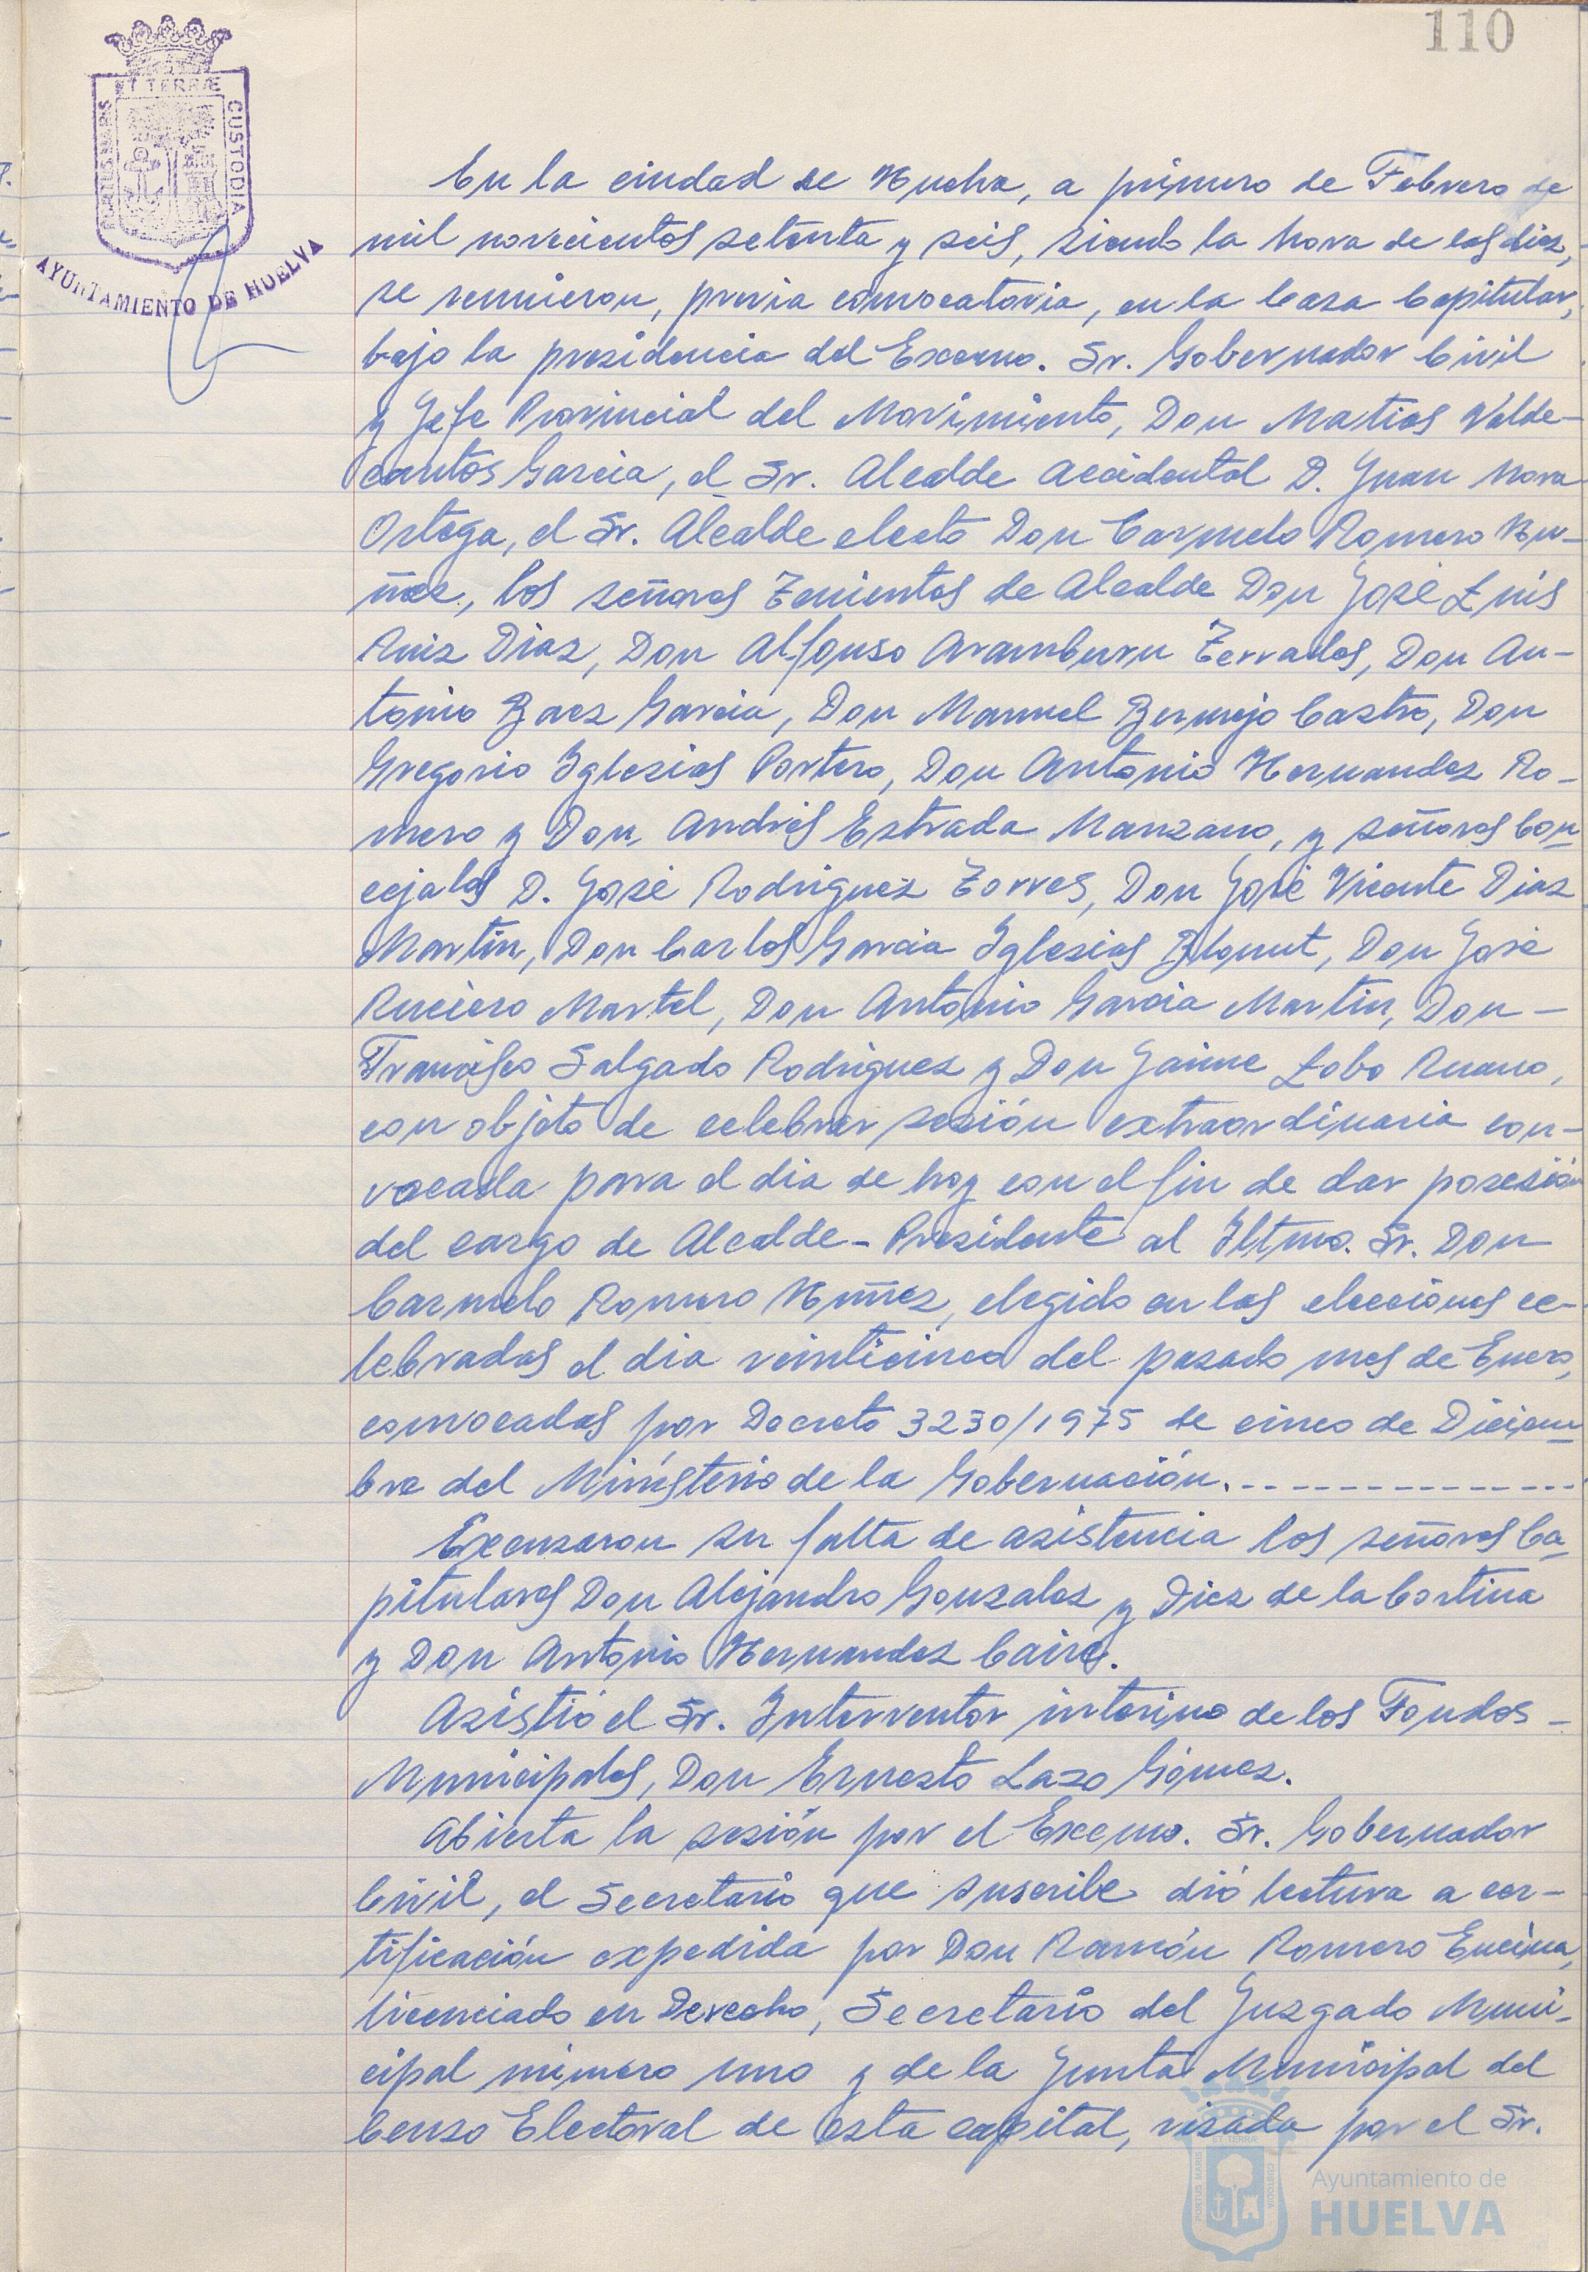 110
PORTUS MARIS ET TERRÆ CUSTODIA
AYUNTAMIENTO DE HUELVA
En la ciudad de Huelva, a primero de Febrero de
mil novecientos setenta y seis, siendo la hora de las diez,
se reunieron, previa convocatoria, en la Casa Capitular,
bajo la presidencia del Excmo. Sr. Gobernador Civil
y Jefe Provincial del Movimiento, Don Matias Valde-
cantos Garcia, el Sr. Alcalde accidental D. Juan Mora
Ortega, el Sr. Alcalde electo Don Carmelo Romero Nu-
ñez, los señores Tenientes de Alcalde Don José Luis
Ruiz Diaz, Don Alfonso Aramburu Terrades, Don An-
tonio Baez Garcia, Don Manuel Bermejo Castro, Don
Gregorio Iglesias Portero, Don Antonio Hernandez Ro-
mero y Don Andrés Estrada Manzano, y señores Con-
cejales D. José Rodriguez Torres, Don José Vicente Diaz
Martin, Don Carlos Garcia Iglesias Blanut, Don José
Ruciero Martel, Don Antonio Garcia Martin, Don -
Francisco Salgado Rodriguez y Don Jaime Lobo Ruano,
con objeto de celebrar sesión extraordinaria con-
vocada para el dia de hoy con el fin de dar posesión
del cargo de Alcalde-Presidente al Iltmo. Sr. Don
Carmelo Romero Nuñez, elegido en las elecciones ce-
lebradas el dia veinticinco del pasado mes de Enero,
convocadas por Decreto 3230/1975 de cinco de Diciem-
bre del Ministerio de la Gobernación.--------------
Excusaron su falta de asistencia los señores Ca-
pitulares Don Alejandro Gonzalez y Diez de la Cortina
y Don Antonio Hernandez Cairé.
Asistió el Sr. Interventor interino de los Fondos -
Municipales, Don Ernesto Lazo Gómez.
Abierta la sesión por el Excmo. Sr. Gobernador
Civil, el Secretario que suscribe dió lectura a cer-
tificación expedida por Don Ramón Romero Encina,
licenciado en Derecho, Secretario del Juzgado Muni-
cipal número uno y de la Junta Municipal del
Censo Electoral de esta capital, visada por el Sr.
Ayuntamiento de
HUELVA